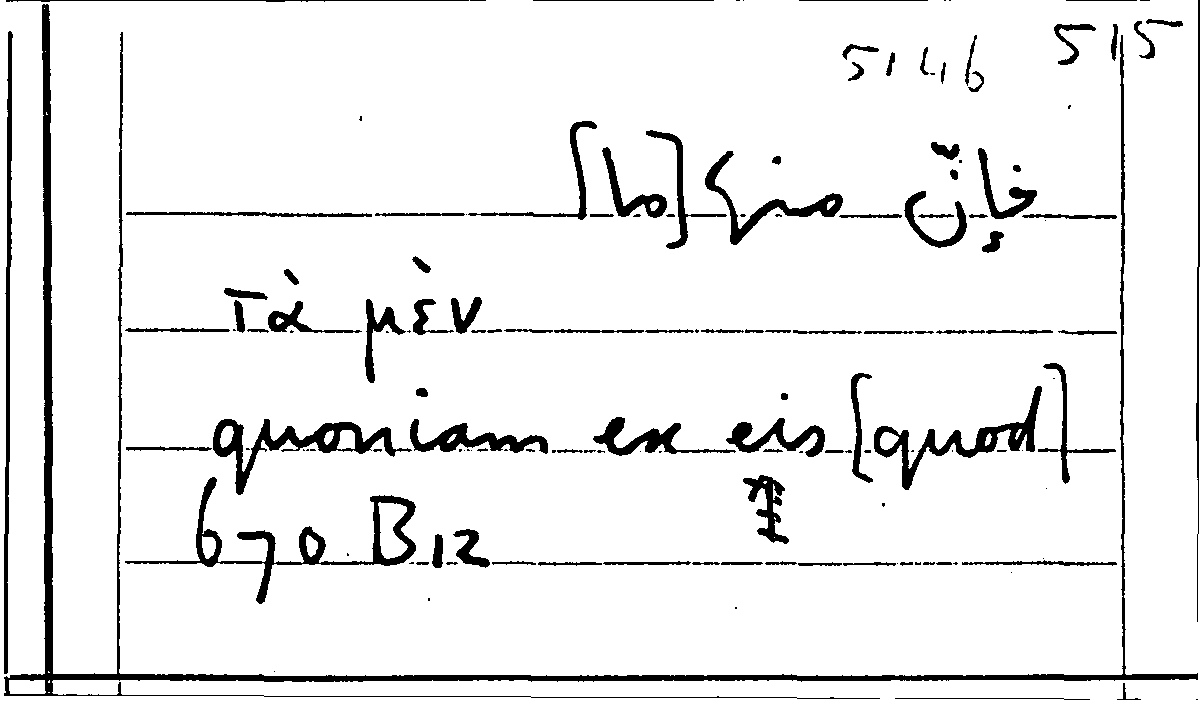 5146 515
فإنّ منها [ما]
τὰ μὲν
quoniam ex eis [quod]
670 B12